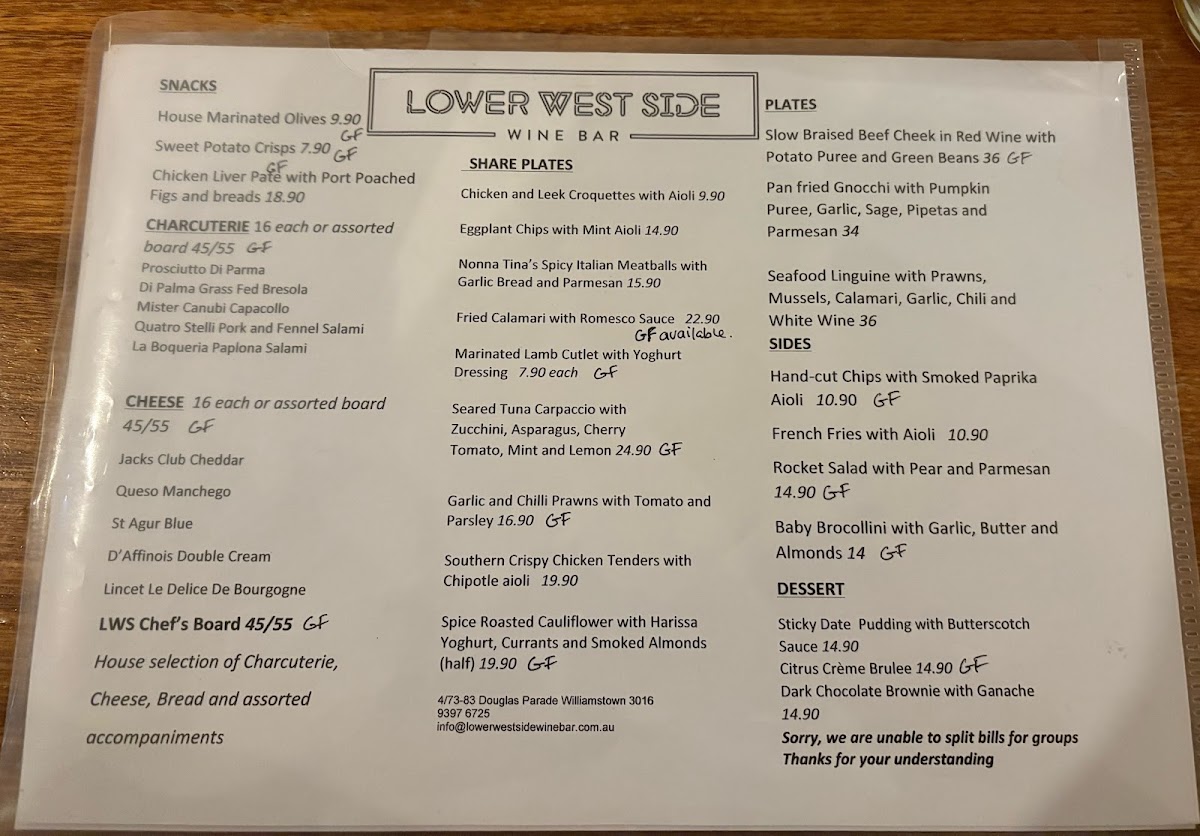 LOWER WEST SIDE
WINE BAR
SNACKS
House Marinated Olives 9.90
GF
Sweet Potato Crisps 7.90 GF
GF
Chicken Liver Pate with Port Poached
Figs and breads 18.90
CHARCUTERIE 16 each or assorted
board 45/55 GF
Prosciutto Di Parma
Di Palma Grass Fed Bresola
Mister Canubi Capacollo
Quatro Stelli Pork and Fennel Salami
La Boqueria Paplona Salami
CHEESE 16 each or assorted board
45/55 GF
Jacks Club Cheddar
Queso Manchego
St Agur Blue
D'Affinois Double Cream
Lincet Le Delice De Bourgogne
LWS Chef's Board 45/55 GF
House selection of Charcuterie,
Cheese, Bread and assorted
accompaniments
SHARE PLATES
Chicken and Leek Croquettes with Aioli 9.90
Eggplant Chips with Mint Aioli 14.90
Nonna Tina's Spicy Italian Meatballs with
Garlic Bread and Parmesan 15.90
Fried Calamari with Romesco Sauce 22.90
GF available.
Marinated Lamb Cutlet with Yoghurt
Dressing 7.90 each GF
Seared Tuna Carpaccio with
Zucchini, Asparagus, Cherry
Tomato, Mint and Lemon 24.90 GF
Garlic and Chilli Prawns with Tomato and
Parsley 16.90 GF
Southern Crispy Chicken Tenders with
Chipotle aioli 19.90
Spice Roasted Cauliflower with Harissa
Yoghurt, Currants and Smoked Almonds
(half) 19.90 GF
4/73-83 Douglas Parade Williamstown 3016
9397 6725
info@lowerwestsidewinebar.com.au
PLATES
Slow Braised Beef Cheek in Red Wine with
Potato Puree and Green Beans 36 GF
Pan fried Gnocchi with Pumpkin
Puree, Garlic, Sage, Pipetas and
Parmesan 34
Seafood Linguine with Prawns,
Mussels, Calamari, Garlic, Chili and
White Wine 36
SIDES
Hand-cut Chips with Smoked Paprika
Aioli 10.90 GF
French Fries with Aioli 10.90
Rocket Salad with Pear and Parmesan
14.90 GF
Baby Brocollini with Garlic, Butter and
Almonds 14 GF
DESSERT
Sticky Date Pudding with Butterscotch
Sauce 14.90
Citrus Crème Brulee 14.90 GF
Dark Chocolate Brownie with Ganache
14.90
Sorry, we are unable to split bills for groups
Thanks for your understanding